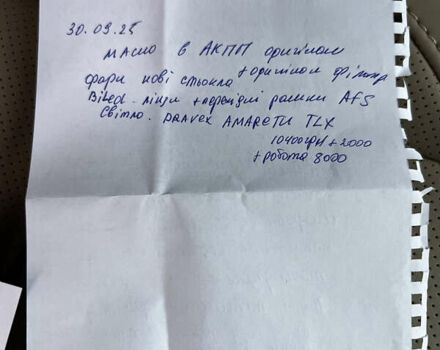 30.09.25
масло в АКПП оригінал
+ оригінал фільтр
фари нові стьокла
Biled - лінзи + перехідні рамки AFS
Світло. DRAVEX AMARETTI TLX
10400грн + 2000
+ робота 8000